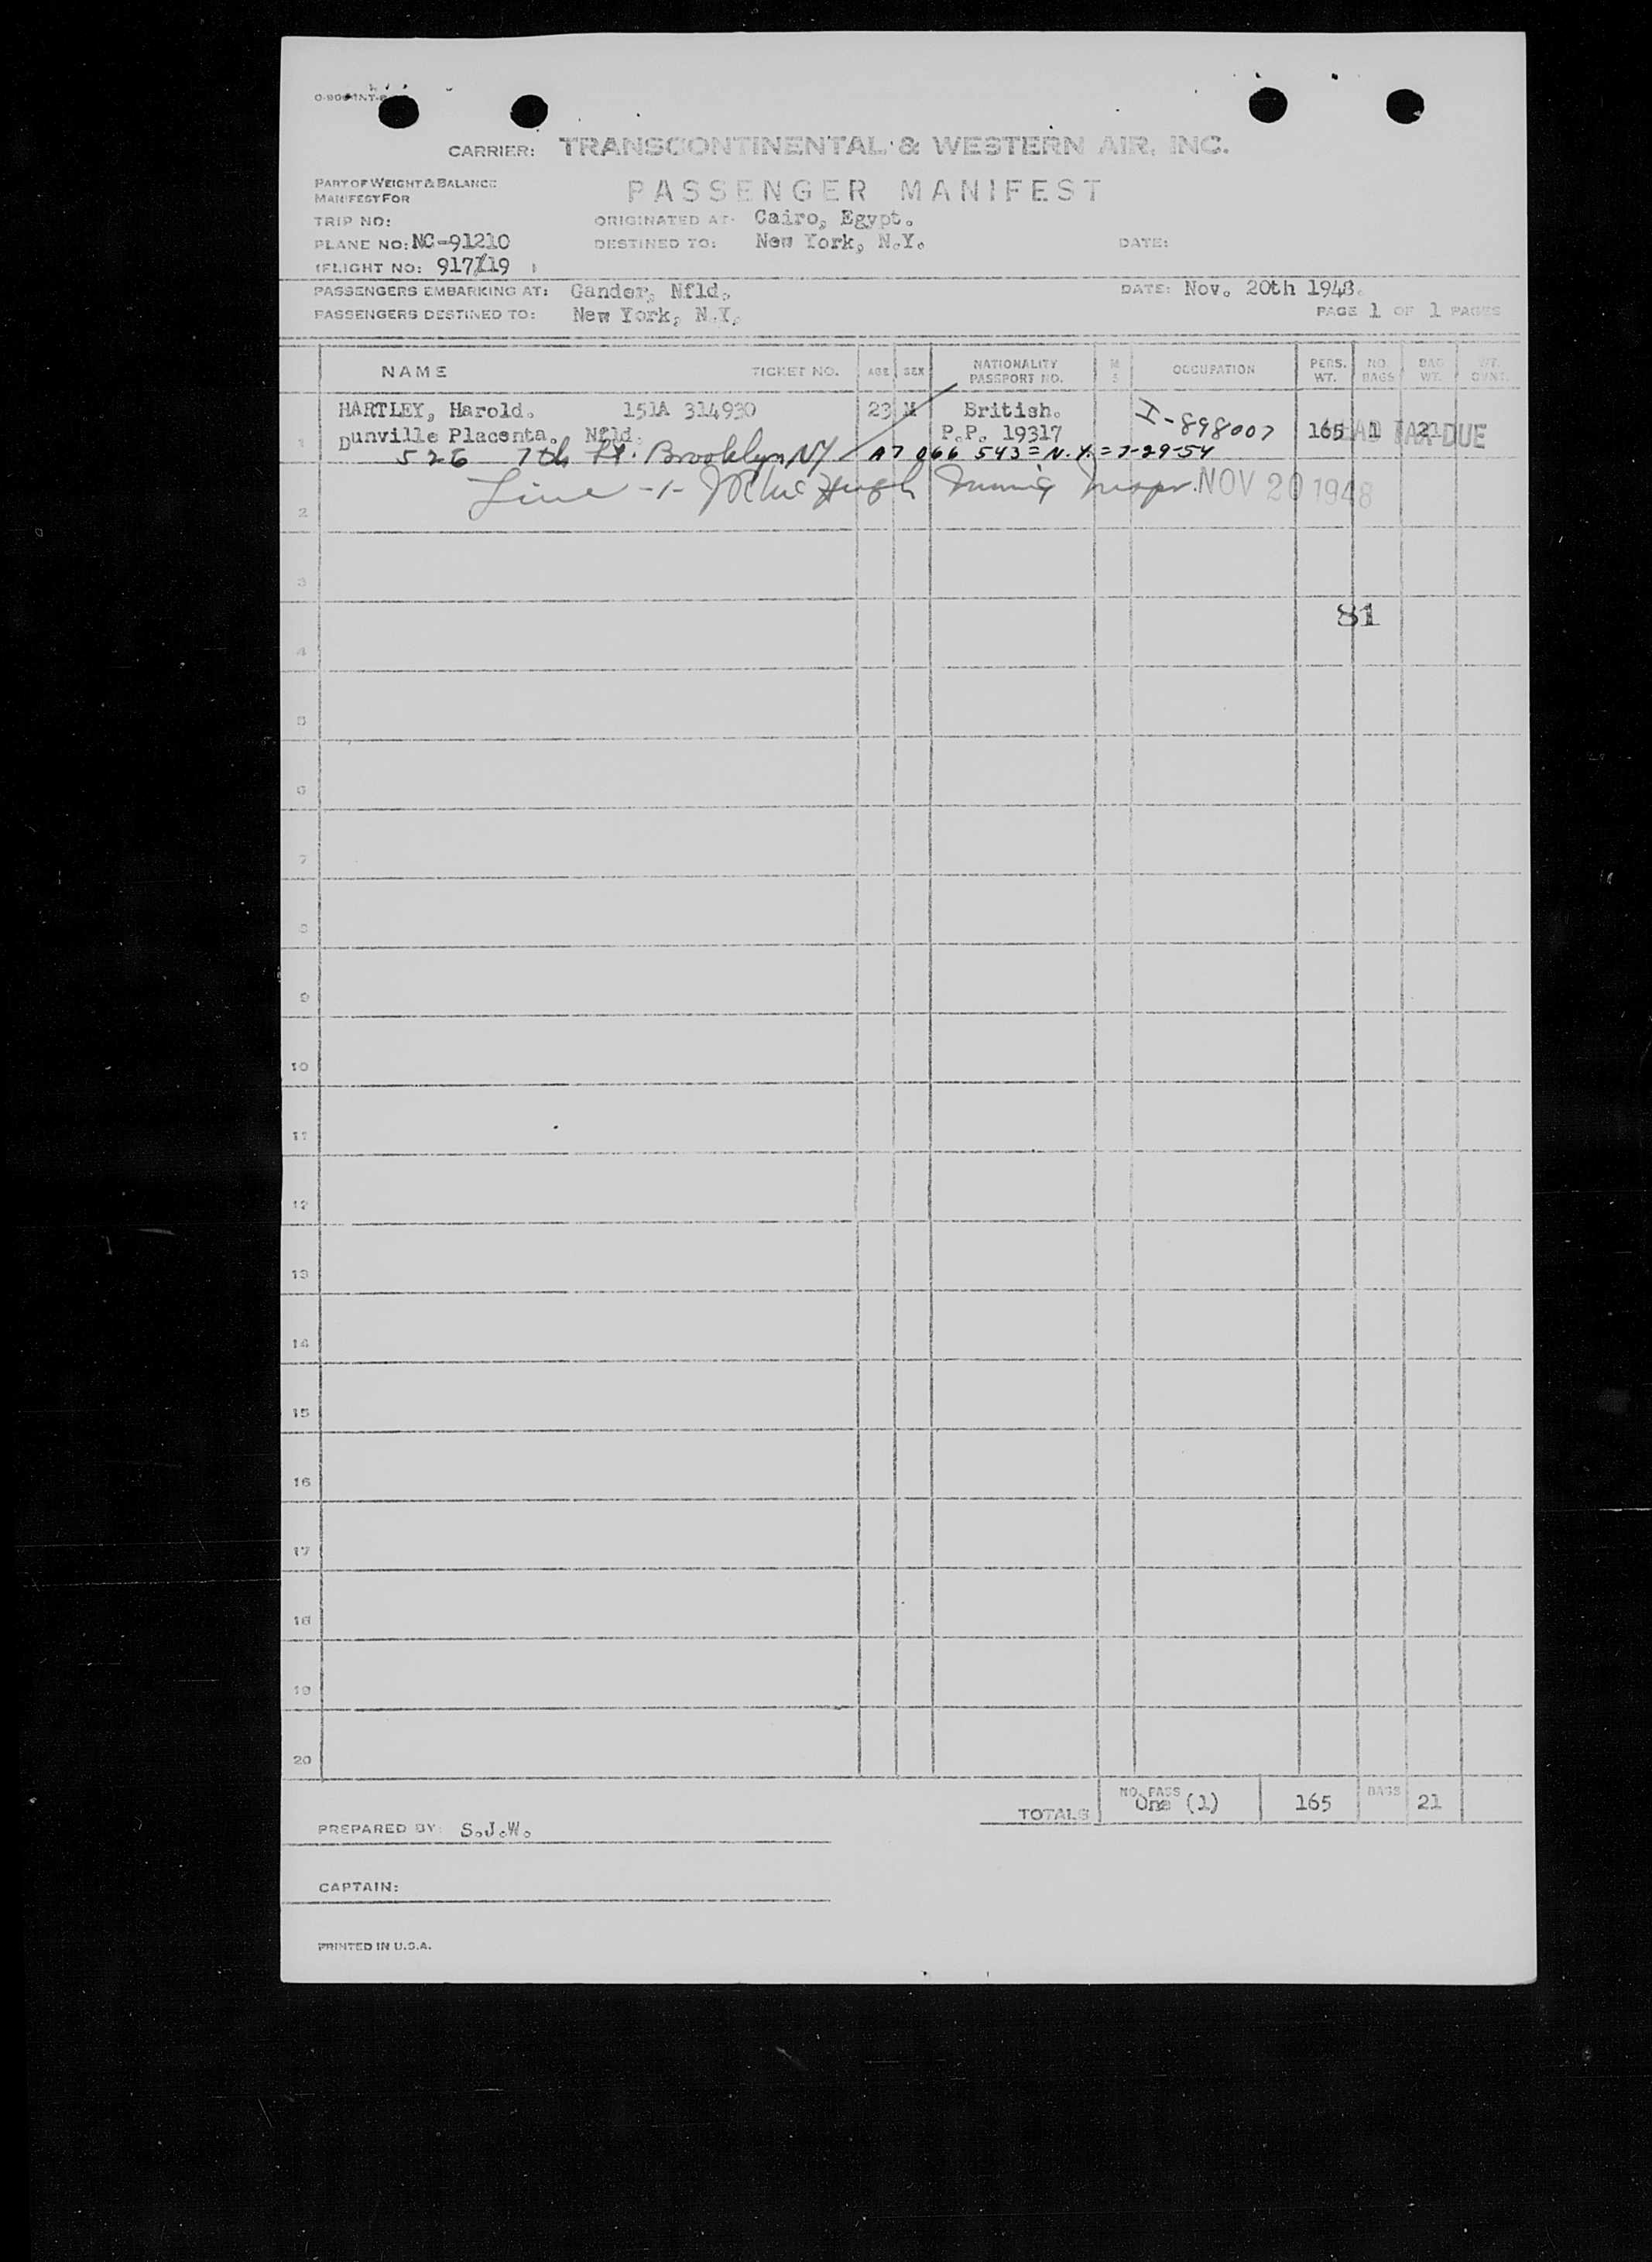 CARRIER: TRANSCONTINENTAL & WESTERN AIR, INC.
PART OF WEIGHT & BALANCE
MANIFEST FOR
PASSENGER MANIFEST
TRIP NO:
ORIGINATED AT- Cairo, Egypt.
PLANE NO: NC-91210
DESTINED TO: New York, N.Y.
DATE:
(FLIGHT NO: 917/119 )
PASSENGERS EMBARKING AT: Gander, Nfld.
DATE: Nov. 20th 1948.
PASSENGERS DESTINED TO: New York, N.Y.
PAGE 1 OF 1 PAGES
NAME TICKET NO. AGE SEX NATIONALITY PASSPORT NO. M S OCCUPATION PERS. WT. NO. BAGS BAG WT.
HARTLEY, Harold. 151A 314930 23 M British. I-898007 165 1 21
1 Dunville Placenta. Nfld. P.P. 19317 TAX DUE
526 7th Brooklyn NY A7 066 543 = N.Y. = 7-29-54
Line -1- NOV 20 1948
2
3
81
4
5
6
7
8
9
10
11
12
13
14
15
16
17
18
19
20
TOTALS NO. PASS One (1) 165 BAGS 21
PREPARED BY: S.J.W.
CAPTAIN:
PRINTED IN U.S.A.